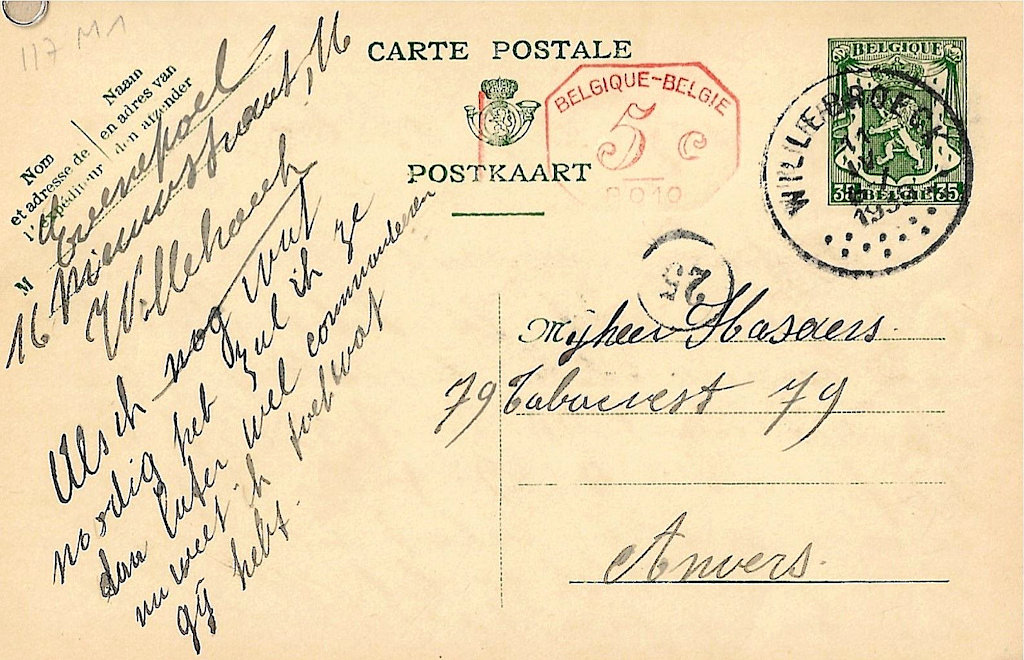 117 M1
CARTE POSTALE
POSTKAART
BELGIQUE-BELGIE
5 c
P010
BELGIQUE
35 BELGIE 35
WILLEBROECK
25
Naam
en adres van
den afzender
Nom
et adresse de
l'expéditeur
M
Evenepoel
16 Nieuwstraat, 16
Willebroeck
Als ik nog wat
noodig heb zul ik ze
dan later wel commanderen
nu weet ik toch wat
gij hebt.
Mijheer
79 Tabacvest 79
Anvers.